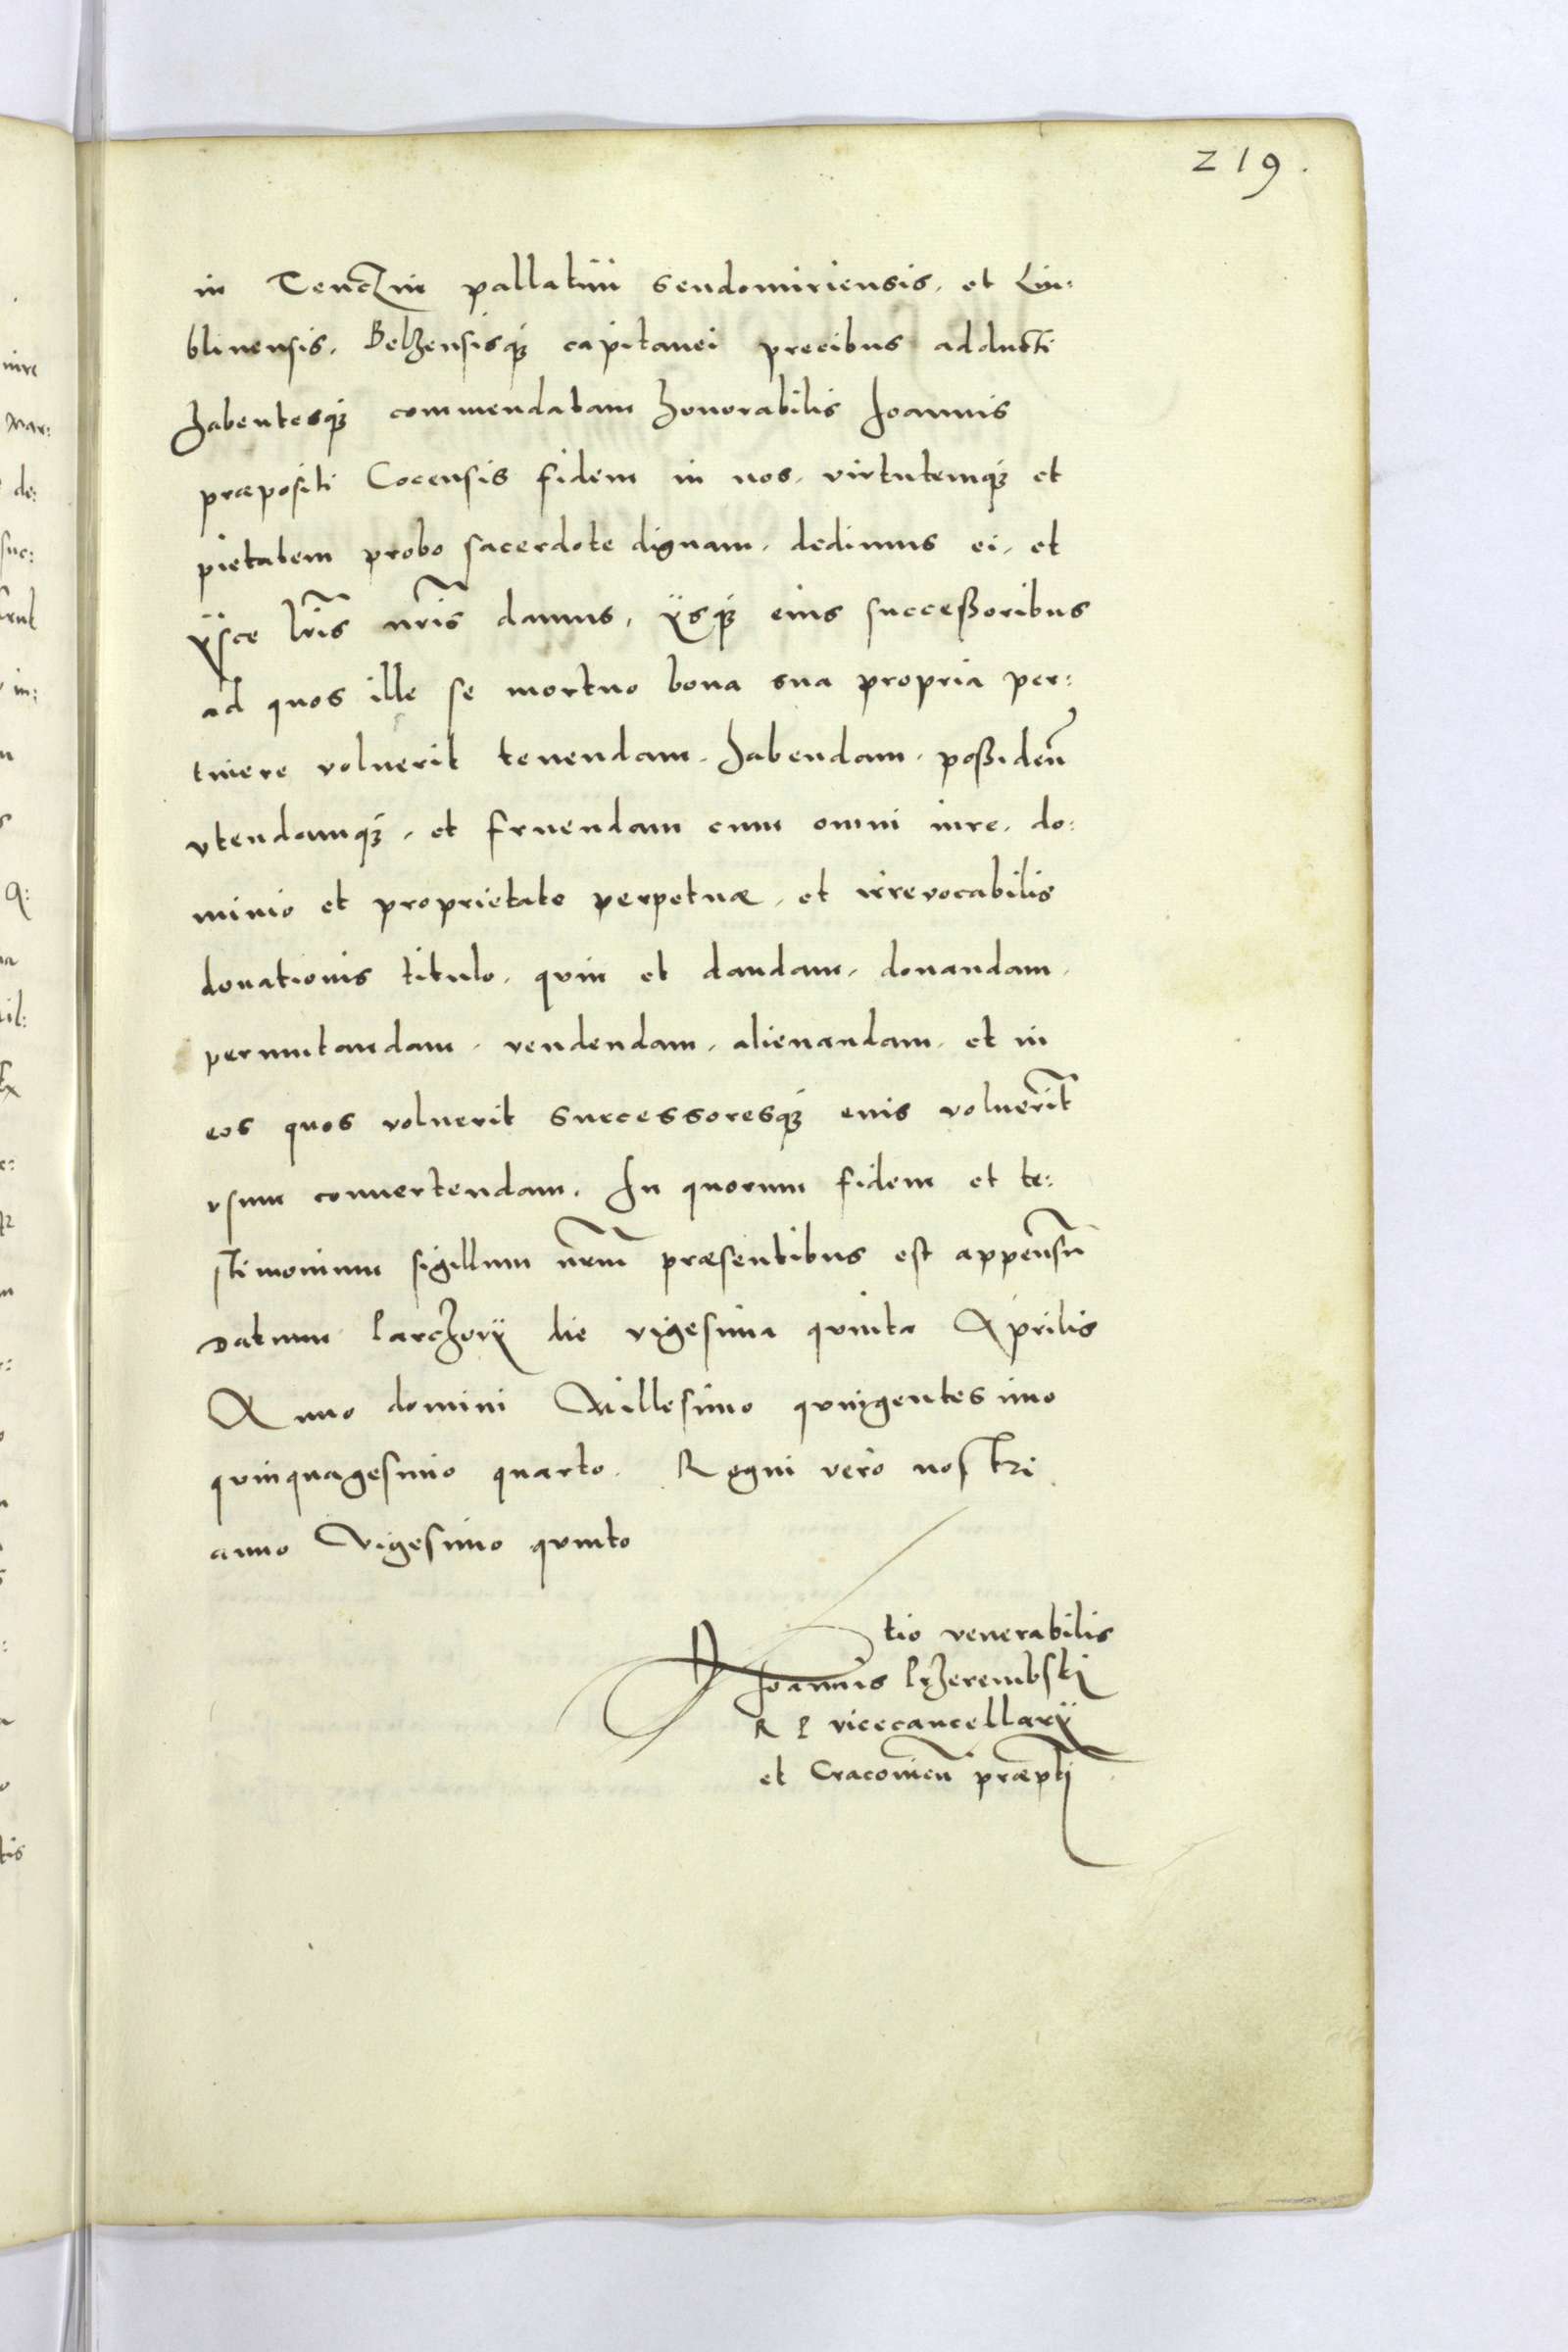 219.
in Tenczin pallatini Sendomiriensis, et Lu:
blinensis, Belzensisq3 capitanei precibus adducti
habentesq3 commendatam honorabilis Joannis
præpositi Cocensis fidem in nos, virtutemq3 et
pietatem probo sacerdote dignam, dedimus ei, et
ijsce lr̃is nr̃is damus, ijsq3 eius successoribus
ad quos ille se mortuo bona sua propria per:
tinere voluerit tenendam, habendam, possideñ
vtendamq3, et fruendam cum omni iure, do:
minio et proprietate perpetuæ, et irrevocabilis
donationis titulo, quin et dandam, donandam,
permutandam, vendendam, alienandam, et in
eos quos voluerit successoresq3 euis voluerĩt
vsum convertendam. In quorum fidem et te:
stimonium sigillum nr̃m præsentibus est appensũ
Datum Parczovij die vigesima quinta Aprilis
Anno domini Millesimo quingentesimo
quinquagesimo quarto. Regni vero nostri
anno Vigesimo quinto
Rtio venerabilis
Joannis Przerembski
R P vicecancellarij
et Cracovieñ præpti